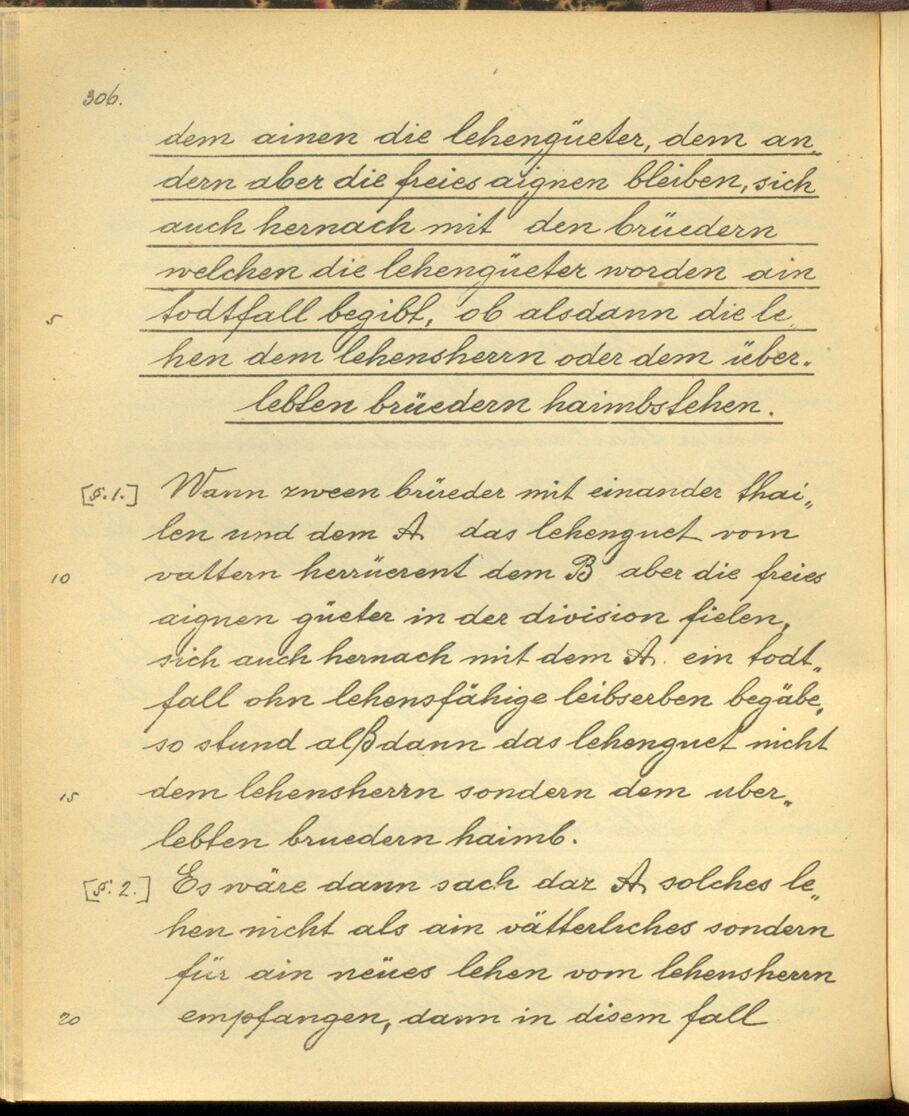 306.
dem ainen die lehengüeter, dem an„
dern aber die freies aignen bleiben, sich
auch hernach mit den brüedern
welchen die lehengüeter worden ain
5 todtfall begibt, ob alsdann die le„
hen dem lehensherrn oder dem über„
lebten brüedern haimbstehen.
[§.1.] Wann zween brüeder mit einander thai„
len und dem A das lehenguet vom
10 vattern herrüerent dem B aber die freies
aignen güeter in der division fielen,
sich auch hernach mit dem A. ein todt„
fall ohn lehensfähige leibserben begäbe,
so stund alßdann das lehenguet nicht
15 dem lehensherrn sondern dem uber„
lebten bruedern haimb.
[§. 2.] Es wäre dann sach daz A solches le„
hen nicht als ain vätterliches sondern
für ain neües lehen vom lehensherrn
20 empfangen, dann in disem fall